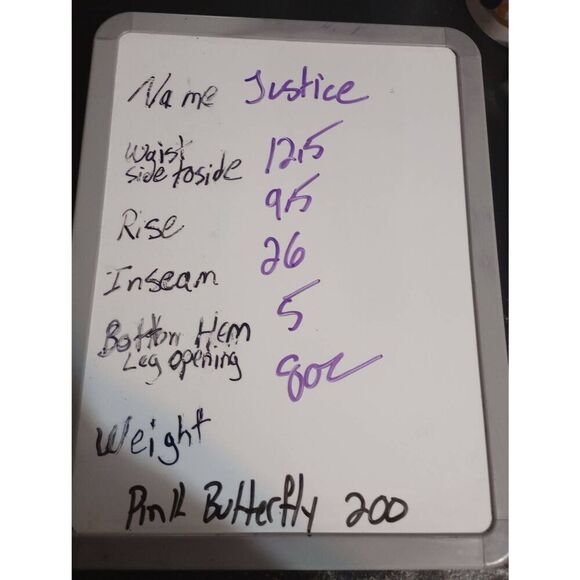 Name Justice
Waist
side to side 12.5
Rise 9.5
Inseam 26
Bottom Hem 5
Leg opening
Weight 8oz
Pink Butterfly 200